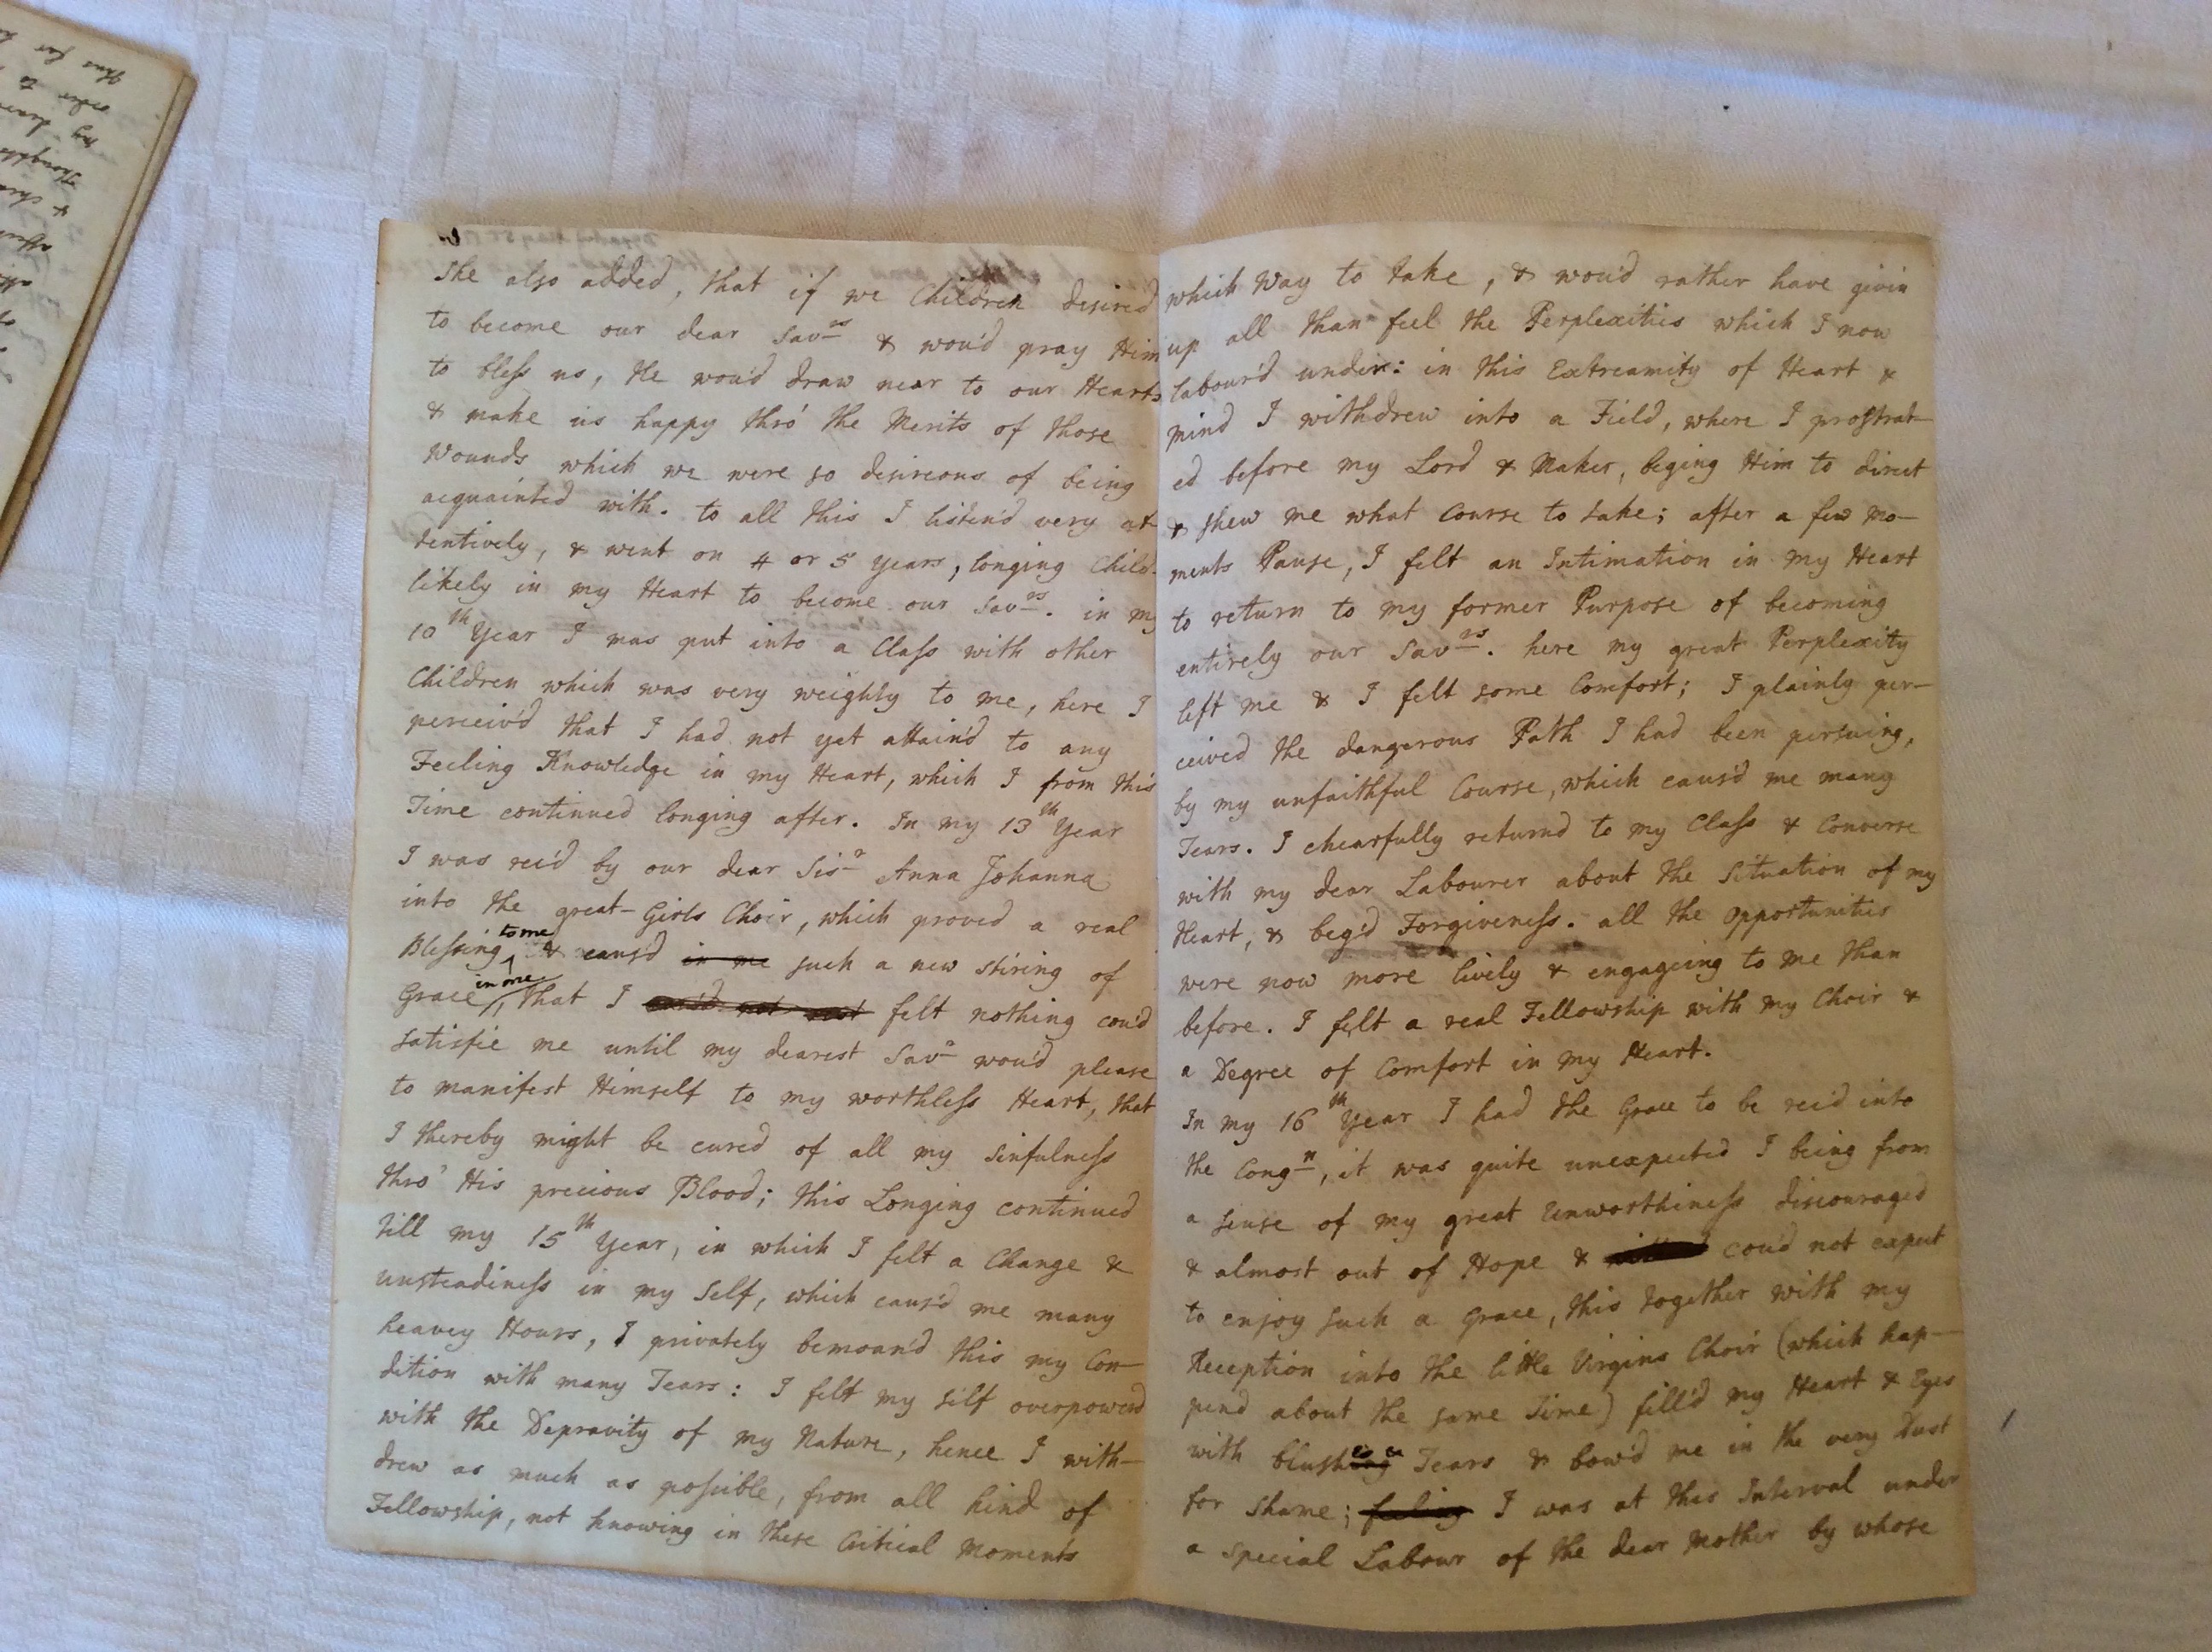 She also added, that if we Children desired
to become our dear Sav.rs & wou'd pray Him
to bless us, He wou'd draw near to our Hearts
& make us happy thro' the Merits of those
Wounds which we were so desireous of being
acquainted with. to all this I listen'd very at-
tentively, & went on 4 or 5 years, longing Child-
likely in my Heart to become our Sav.rs. in my
10th Year I was put into a Class with other
Children which was very weighty to me, here I
perceiv'd that I had not yet attain'd to any
Feeling Knowledge in my Heart, which I from this
Time continued longing after. In my 13th Year
I was rec'd by our dear Sis.r Anna Johanna
into the great-Girls Choir, which proved a real
Blessing to me & caus'd in me such a new stiring of
Grace in me, that I cou'd not rest felt nothing cou'd
satisfie me until my dearest Sav.r wou'd please
to manifest Himself to my worthless Heart, that
I thereby might be cured of all my sinfulness
thro' His precious Blood; this Longing continued
till my 15th Year, in which I felt a Change &
unsteadiness in my Self, which caus'd me many
heavey Hours, I privately bemoan'd this my Con-
dition with many Tears: I felt my self overpowerd
with the Depravity of my Nature, hence I with-
drew as much as possible, from all kind of
Fellowship, not knowing in these Critical Moments
which Way to take, & wou'd rather have givin
up all than feel the Perplexities which I now
labour'd under: in this Extreamity of Heart &
mind I withdrew into a Field, where I prostrat-
ed before my Lord & Maker, beging Him to direct
& shew me what Course to take; after a few Mo-
ments Pause, I felt an Intimation in my Heart
to return to my former Purpose of becoming
entirely our Sav.rs. here my great Perplexity
left me & I felt some Comfort; I plainly per-
ceived the dangerous Path I had been persuing,
by my unfaithful Course, which caus'd me many
Tears. I chearfully returnd to my Class & Converse
with my dear Labourer about the Situation of my
Heart, & beg'd Forgiveness. all the Opportunities
were now more lively & engageing to me than
before. I felt a real Fellowship with my Choir &
a Degree of Comfort in my Heart.
In my 16th Year I had the Grace to be rec'd into
the Cong.n, it was quite unexpected I being from
a sense of my great Unworthiness discouraged
& almost out of Hope & cou'd not expect
to enjoy such a Grace, this together with my
Reception into the little Virgins Choir (which hap-
pend about the same Time) fill'd my Heart & Eyes
with blushing Tears & bow'd me in the very Dust
for Shame; feeling I was at this Interval under
a special Labour of the dear Mother by whose